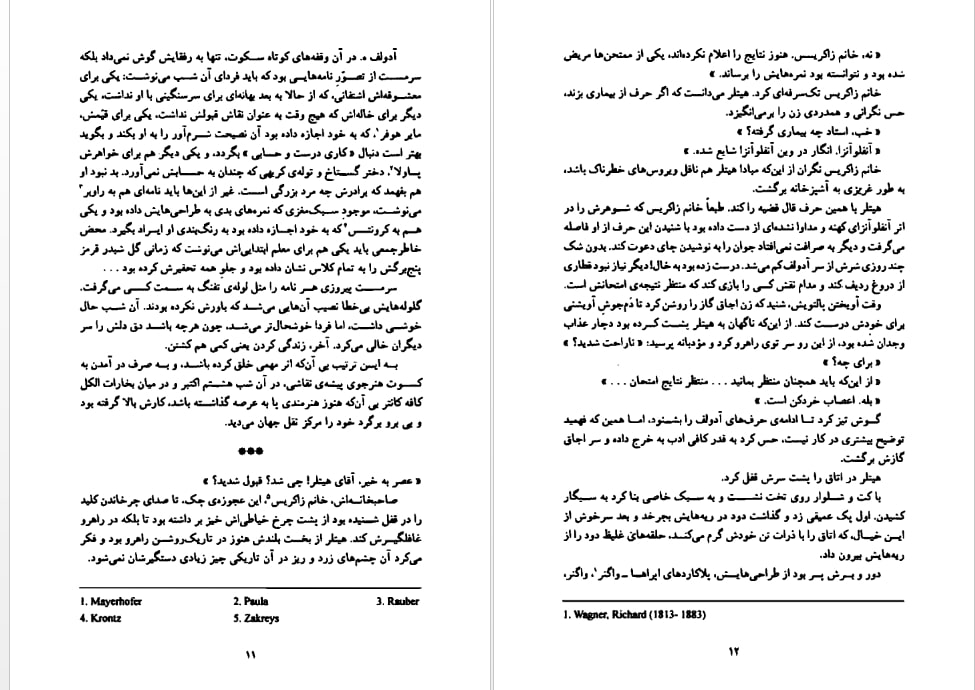 آدولف ه. در آن وقفه‌های کوتاه سکوت، تنها به رفقایش گوش نمی‌داد بلکه
سرمست از تصوّر نامه‌هایی بود که باید فردای آن شب می‌نوشت: یکی برای
معشوقه‌اش اشتفانی، که از حالا به بعد بهانه‌ای برای سرسنگینی با او نداشت، یکی
دیگر برای خاله‌اش که هیچ وقت به عنوان نقاش قبولش نداشت، یکی برای قیّمش،
مایر هوفر۱، که به خود اجازه داده بود آن نصیحت شرم‌آور را به او بکند و بگوید
بهتر است دنبال «کاری درست و حسابی» بگردد، و یکی دیگر هم برای خواهرش
پاولا۲، دختر گستاخ و توله‌ی کریهی که چندان به حسابش نمی‌آورد. بد نبود او
هم بفهمد که برادرش چه مرد بزرگی است. غیر از این‌ها باید نامه‌ای هم به راوبر۳
می‌نوشت، موجود سبک‌مغزی که نمره‌های بدی به طراحی‌هایش داده بود و یکی
هم به کرونتس۴ که به خود اجازه داده بود به رنگ‌بندی او ایراد بگیرد. محض
خاطرجمعی باید یکی هم برای معلم ابتدایی‌اش می‌نوشت که زمانی گل شبدر قرمز
پنج‌برگش را به تمام کلاس نشان داده بود و جلو همه تحقیرش کرده بود ...
سرمست پیروزی هر نامه را مثل لوله‌ی تفنگ به سمت کسی می‌گرفت.
گلوله‌هایش بی‌خطا نصیب آن‌هایی می‌شد که باورش نکرده بودند. آن شب حال
خوشی داشت، اما فردا خوشحال‌تر می‌شد، چون هرچه باشد دق دلش را سر
دیگران خالی می‌کرد. آخر، زندگی کردن یعنی کمی هم کشتن.
به این ترتیب بی آن‌که اثر مهمی خلق کرده باشد، و به صرف در آمدن به
کسوت هنرجوی پیشه‌ی نقاشی، در آن شب هشتم اکتبر و در میان بخارات الکل
کافه کانتر بی آن‌که هنوز هنرمندی پا به عرصه گذاشته باشد، کارش بالا گرفته بود
و بی برو برگرد خود را مرکز نقل جهان می‌دید.
***
« عصر به خیر، آقای هیتلر! چی شد؟ قبول شدید؟ »
صاحبخانه‌اش، خانم زاکریس۵، این عجوزه‌ی چک، تا صدای چرخاندن کلید
را در قفل شنیده بود از پشت چرخ خیاطی‌اش خیز بر داشته بود تا بلکه در راهرو
غافلگیرش کند. هیتلر از بخت بلندش هنوز در تاریک‌روشن راهرو بود و فکر
می‌کرد آن چشم‌های زرد و ریز در آن تاریکی چیز زیادی دستگیرشان نمی‌شود.
1. Mayerhofer 2. Paula 3. Rauber
4. Krontz 5. Zakreys
۱۱
« نه، خانم زاکریس. هنوز نتایج را اعلام نکرده‌اند، یکی از ممتحن‌ها مریض
شده بود و نتوانسته بود نمره‌هایش را برساند. »
خانم زاکریس تک‌سرفه‌ای کرد. هیتلر می‌دانست که اگر حرف از بیماری بزند،
حس نگرانی و همدردی زن را برمی‌انگیزد.
« خب، استاد چه بیماری گرفته؟ »
« آنفلوآنزا. انگار در وین آنفلوآنزا شایع شده. »
خانم زاکریس نگران از این‌که مبادا هیتلر هم ناقل ویروس‌های خطرناک باشد،
به طور غریزی به آشپزخانه برگشت.
هیتلر با همین حرف قال قضیه را کند. طبعاً خانم زاکریس که شوهرش را در
اثر آنفلوآنزای کهنه و مداوا نشده‌ای از دست داده بود با شنیدن این حرف از او فاصله
می‌گرفت و دیگر به صرافت نمی‌افتاد جوان را به نوشیدن چای دعوت کند. بدون شک
چند روزی شرش از سر آدولف کم می‌شد. درست زده بود به خال! دیگر نیاز نبود قطاری
از دروغ ردیف کند و مدام نقش کسی را بازی کند که منتظر نتیجه‌ی امتحانش است.
وقت آویختن پالتویش، شنید که زن اجاق گاز را روشن کرد تا دَم‌جوش آویشنی
برای خودش درست کند. از این‌که ناگهان به هیتلر پشت کرده بود دچار عذاب
وجدان شده بود، از این رو سر توی راهرو کرد و مؤدبانه پرسید: « ناراحت شدید؟ »
« برای چه؟ »
« از این‌که باید همچنان منتظر بمانید ... منتظر نتایج امتحان ... »
« بله. اعصاب خردکن است. »
گوش تیز کرد تا ادامه‌ی حرف‌های آدولف را بشنود، اما همین که فهمید
توضیح بیشتری در کار نیست، حس کرد به قدر کافی ادب به خرج داده و سر اجاق
گازش برگشت.
هیتلر در اتاق را پشت سرش قفل کرد.
با کت و شلوار روی تخت نشست و به سبک خاصی بنا کرد به سیگار
کشیدن. اول پک عمیقی زد و گذاشت دود در ریه‌هایش بچرخد و بعد سرخوش از
این خیال، که اتاق را با ذرات تن خودش گرم می‌کند، حلقه‌های غلیظ دود را از
ریه‌هایش بیرون داد.
دور و برش پر بود از طراحی‌هایش، پلاکاردهای اپراها ـ واگنر۱، واگنر،
1. Wagner, Richard (1813- 1883)
۱۲